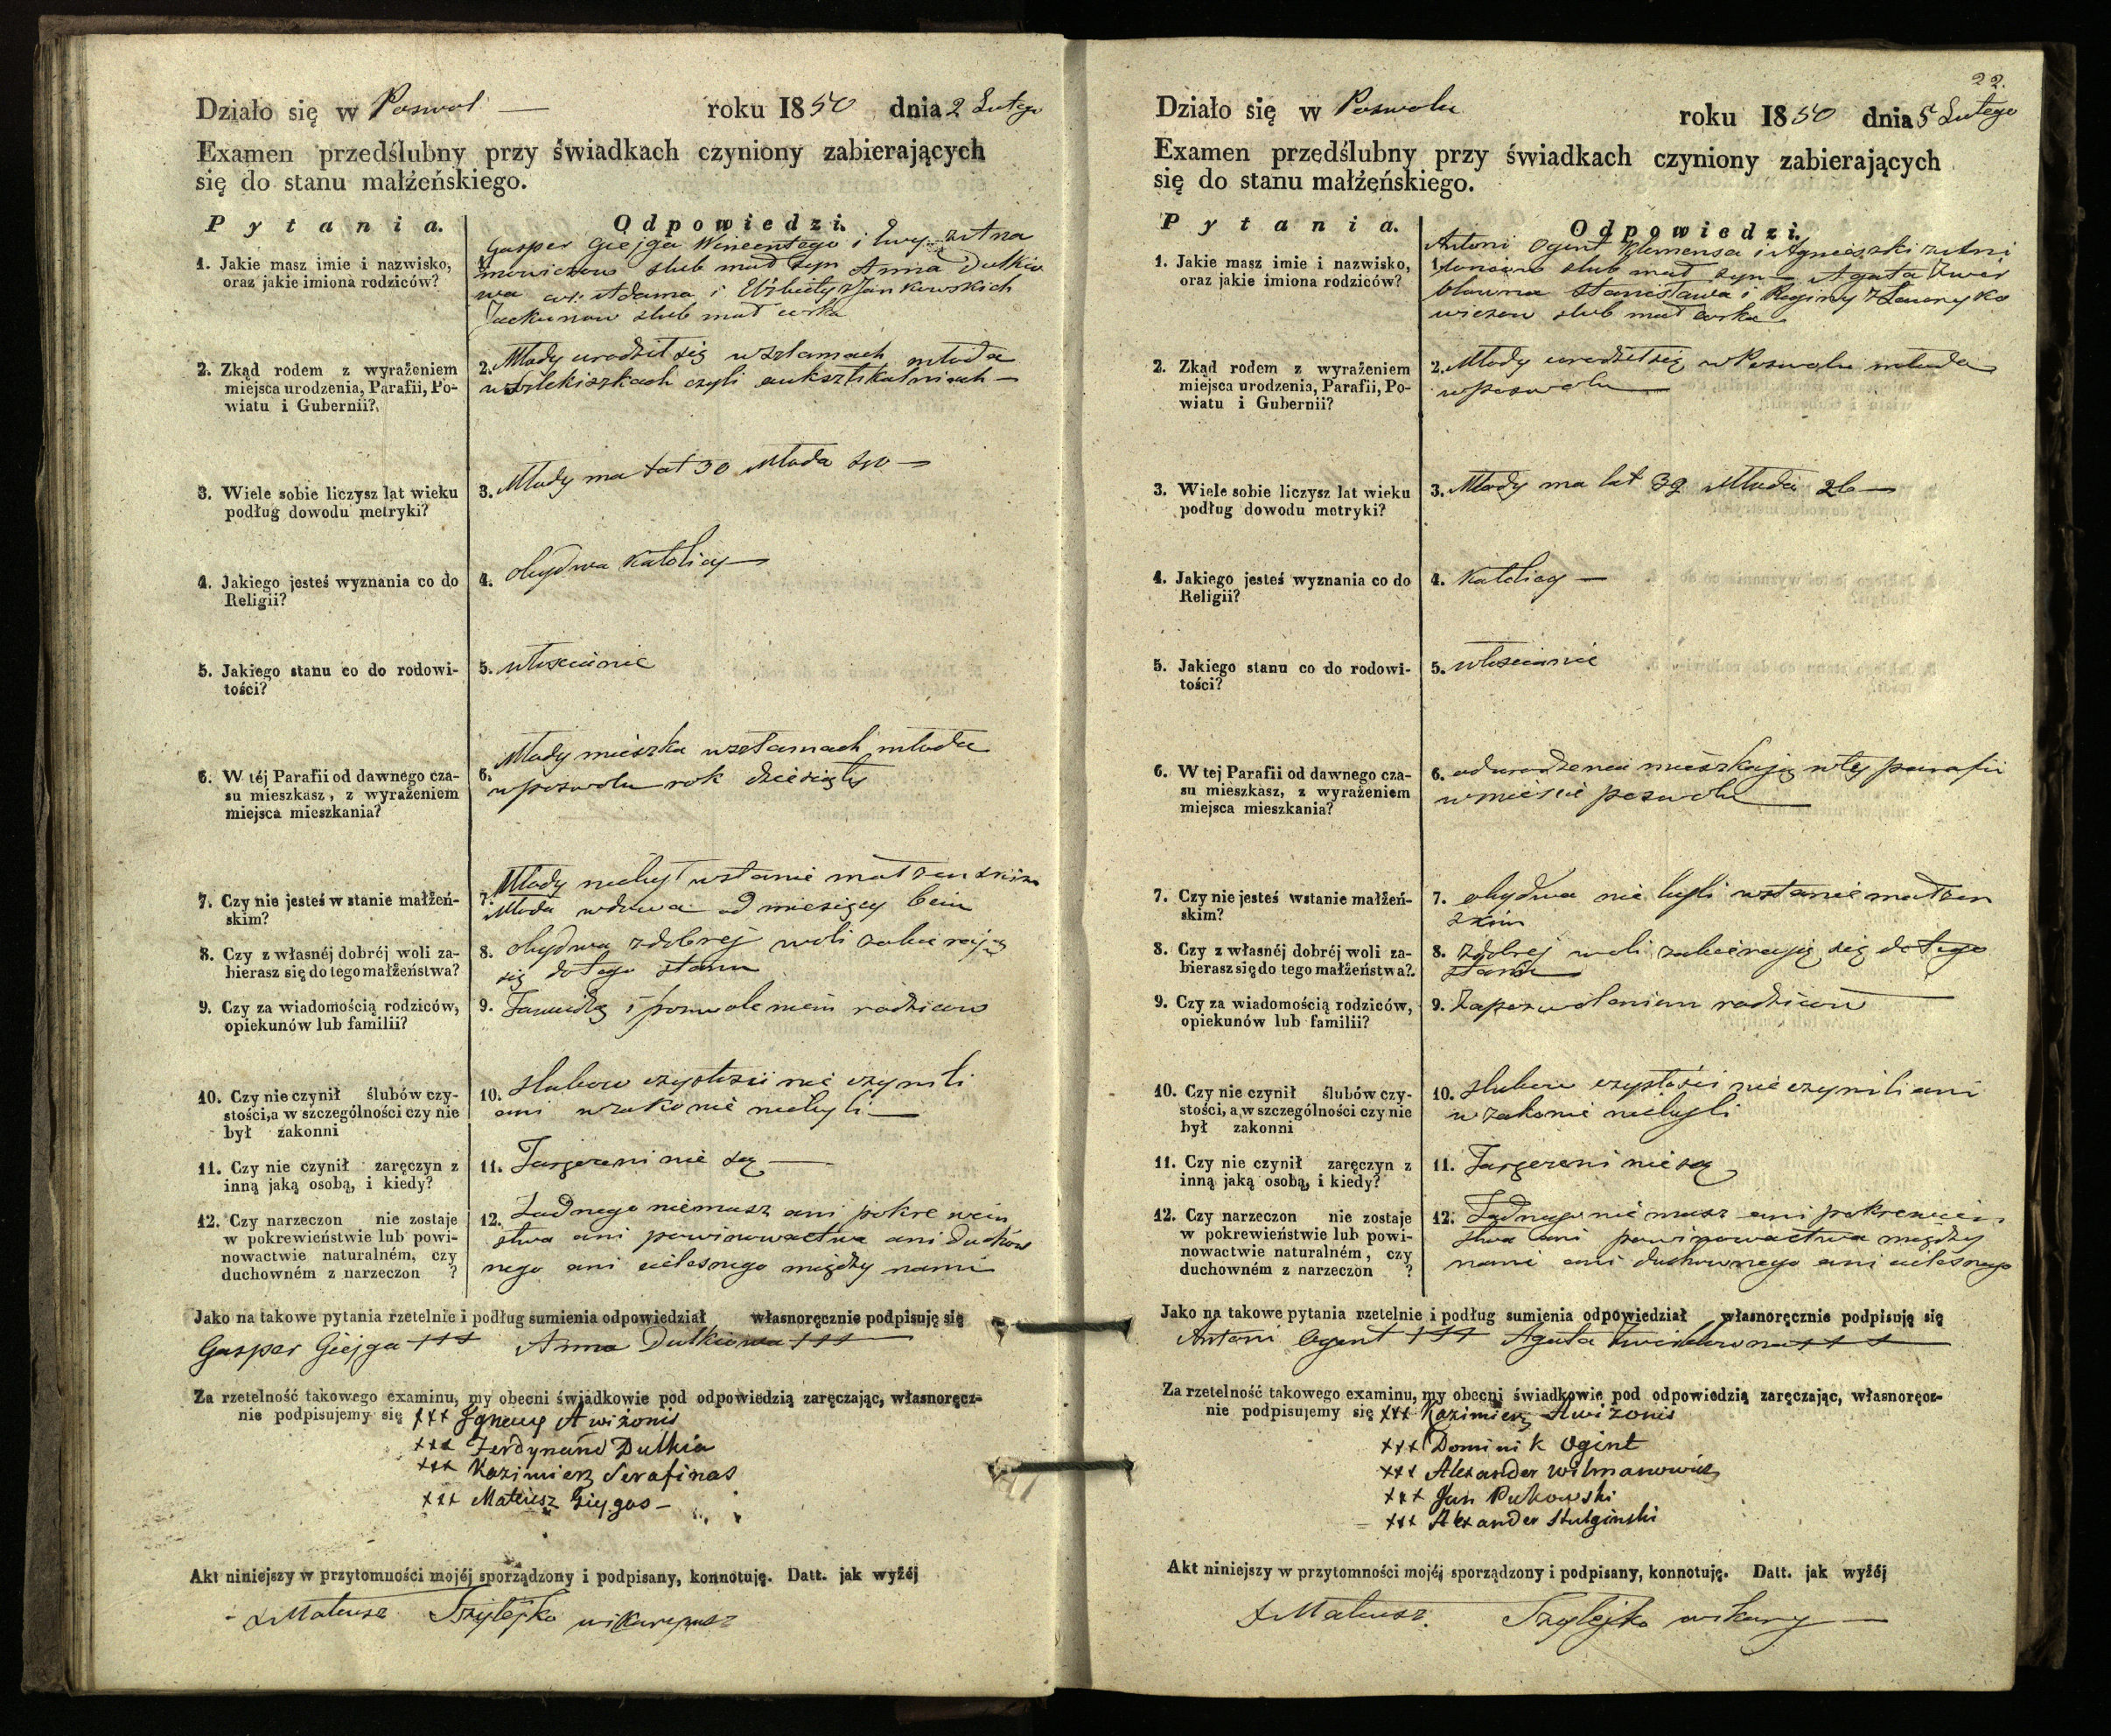 Działo się w Poswol — roku 1850 dnia 2 Lutego
Examen przedślubny przy świadkach czyniony zabierających
się do stanu małżeńskiego.
Pytania. Odpowiedzi.
1. Jakie masz imie i nazwisko,
oraz jakie imiona rodziców?
1. Gasper Giejga Wincentego i Ewy
slub mał syn Anna Dulkio
wa Adama i Elżbiety z Jankowskich
slub mał curka
2. Zkąd rodem z wyrażeniem
miejsca urodzenia, Parafii, Po-
wiatu i Gubernii?
2. Młody urodził się młoda
czyli
3. Wiele sobie liczysz lat wieku
podług dowodu metryki?
3. Młody ma lat 30 Młoda
4. Jakiego jesteś wyznania co do
Religii?
4. obydwa Katolicy —
5. Jakiego stanu co do rodowi-
tości?
5. włoscianie
6. W téj Parafii od dawnego cza-
su mieszkasz, z wyrażeniem
miejsca mieszkania?
6. Młody mieszka młoda
w poswolu rok dziesiąty
7. Czy nie jesteś w stanie małżeń-
skim?
7. Młody niebył wstanie małżenskim
Młoda wdowa od miesięcy
8. Czy z własnéj dobréj woli za-
bierasz się do tego małżeństwa?
8. obydwa zdobrej woli zabierają
się do tego stanu
9. Czy za wiadomością rodziców,
opiekunów lub familii?
9. i pozwoleniem rodzicow
10. Czy nie czynił ślubów czy-
stości, a w szczególności czy nie
był zakonni
10. slubow czystosci nie czynili
ani wzakonie niebyli —
11. Czy nie czynił zaręczyn z
inną jaką osobą, i kiedy?
11. Zaręczeni nie są —
12. Czy narzeczon nie zostaje
w pokrewieństwie lub powi-
nowactwie naturalném, czy
duchowném z narzeczon ?
12. Żadnego niemasz ani pokrewien
stwa ani powinowactwa ani duchow
nego ani cielesnego między nami
Jako na takowe pytania rzetelnie i podług sumienia odpowiedział własnoręcznie podpisuję się
Gasper Giejga +++ Anna Dulkiowa +++
Za rzetelność takowego examinu, my obecni świadkowie pod odpowiedzią zaręczając, własnoręcz-
nie podpisujemy się +++ Ignacy Awiżonis
+++ Ferdynand Dulkia
+++ Kazimierz Serafinas
+++ Mateusz Gieygas —
Akt niniejszy w przytomności mojéj sporządzony i podpisany, konnotuję. Datt. jak wyźéj
X Mateusz Szylejko
22.
Działo się w Poswolu roku 1850 dnia 5 Lutego
Examen przedślubny przy świadkach czyniony zabierających
się do stanu małżeńskiego.
Pytania. Odpowiedzi.
1. Jakie masz imie i nazwisko,
oraz jakie imiona rodziców?
1. Antoni Ogint Klemensa i Agnieszki
slub mał syn — Agata
Stanisława i Reginy z
slub mał curka
2. Zkąd rodem z wyrażeniem
miejsca urodzenia, Parafii, Po-
wiatu i Gubernii?
2. Młody urodził się w Poswolu młoda
w poswolu —
3. Wiele sobie liczysz lat wieku
podług dowodu metryki?
3. Młody ma lat 39 Młoda 26 —
4. Jakiego jesteś wyznania co do
Religii?
4. Katolicy —
5. Jakiego stanu co do rodowi-
tości?
5. włoscianie
6. W tej Parafii od dawnego cza-
su mieszkasz, z wyrażeniem
miejsca mieszkania?
6. od urodzenia mieszkają wtej parafii
w miescie poswolu —
7. Czy nie jesteś wstanie małżeń-
skim?
7. obydwa nie byli wstanie małzen
skim
8. Czy z własnéj dobréj woli za-
bierasz się do tego małżeństwa?
8. zdobrej woli zabierają się do tego
stanu
9. Czy za wiadomością rodziców,
opiekunów lub familii?
9. Zapozwoleniem rodzicow
10. Czy nie czynił ślubów czy-
stości, a w szczególności czy nie
był zakonni
10. slubow czystości nie czynili ani
w zakonie niebyli
11. Czy nie czynił zaręczyn z
inną jaką osobą, i kiedy?
11. Zaręczeni nie są
12. Czy narzeczon nie zostaje
w pokrewieństwie lub powi-
nowactwie naturalném, czy
duchowném z narzeczon ?
12. Żadnego nie masz ani pokrewien
stwa ani powinowactwa między
nami ani duchownego ani cielesnego
Jako na takowe pytania rzetelnie i podług sumienia odpowiedział własnoręcznie podpisuję się
Antoni Ogent +++ Agata +++
Za rzetelność takowego examinu, my obecni świadkowie pod odpowiedzią zaręczając, własnoręcz-
nie podpisujemy się +++ Kazimierz Awiżonis
+++ Dominik Ogint
+++ Alexander Wilmanowicz
+++ Jan Pukowski
+++ Alexander Stulginski
Akt niniejszy w przytomności mojéj sporządzony i podpisany, konnotuję. Datt. jak wyźéj
X Mateusz Szylejko wikary —